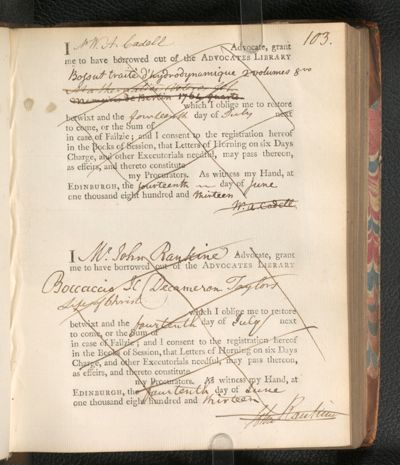 103.
I Mr W. A. Cadell Advocate, grant
me to have borrowed out of the ADVOCATES LIBRARY
Bossut traité d'hydrodynamique 2 volumes 8vo
Memoirs de Berlin 1764 quarto
which I oblige me to restore
betwixt and the fourteenth day of July next
to come, or the Sum of
in case of Failzie; and I consent to the registration hereof
in the Books of Session, that Letters of Horning on six Days
Charge, and other Executorials needful, may pass thereon,
as effeirs, and thereto constitute
my Procurators. As witness my Hand, at
EDINBURGH, the fourteenth day of June
one thousand eight hundred and thirteen
W. A. Cadell
I Mr. John Rankine Advocate, grant
me to have borrowed out of the ADVOCATES LIBRARY
Boccaccio Il Decameron Taylors
Life of Christ
which I oblige me to restore
betwixt and the fourteenth day of July next
to come, or the Sum of
in case of Failzie; and I consent to the registration hereof
in the Books of Session, that Letters of Horning on six Days
Charge, and other Executorials needful, may pass thereon,
as effeirs, and thereto constitute
my Procurators. As witness my Hand, at
EDINBURGH, the fourteenth day of June
one thousand eight hundred and thirteen
John Rankine